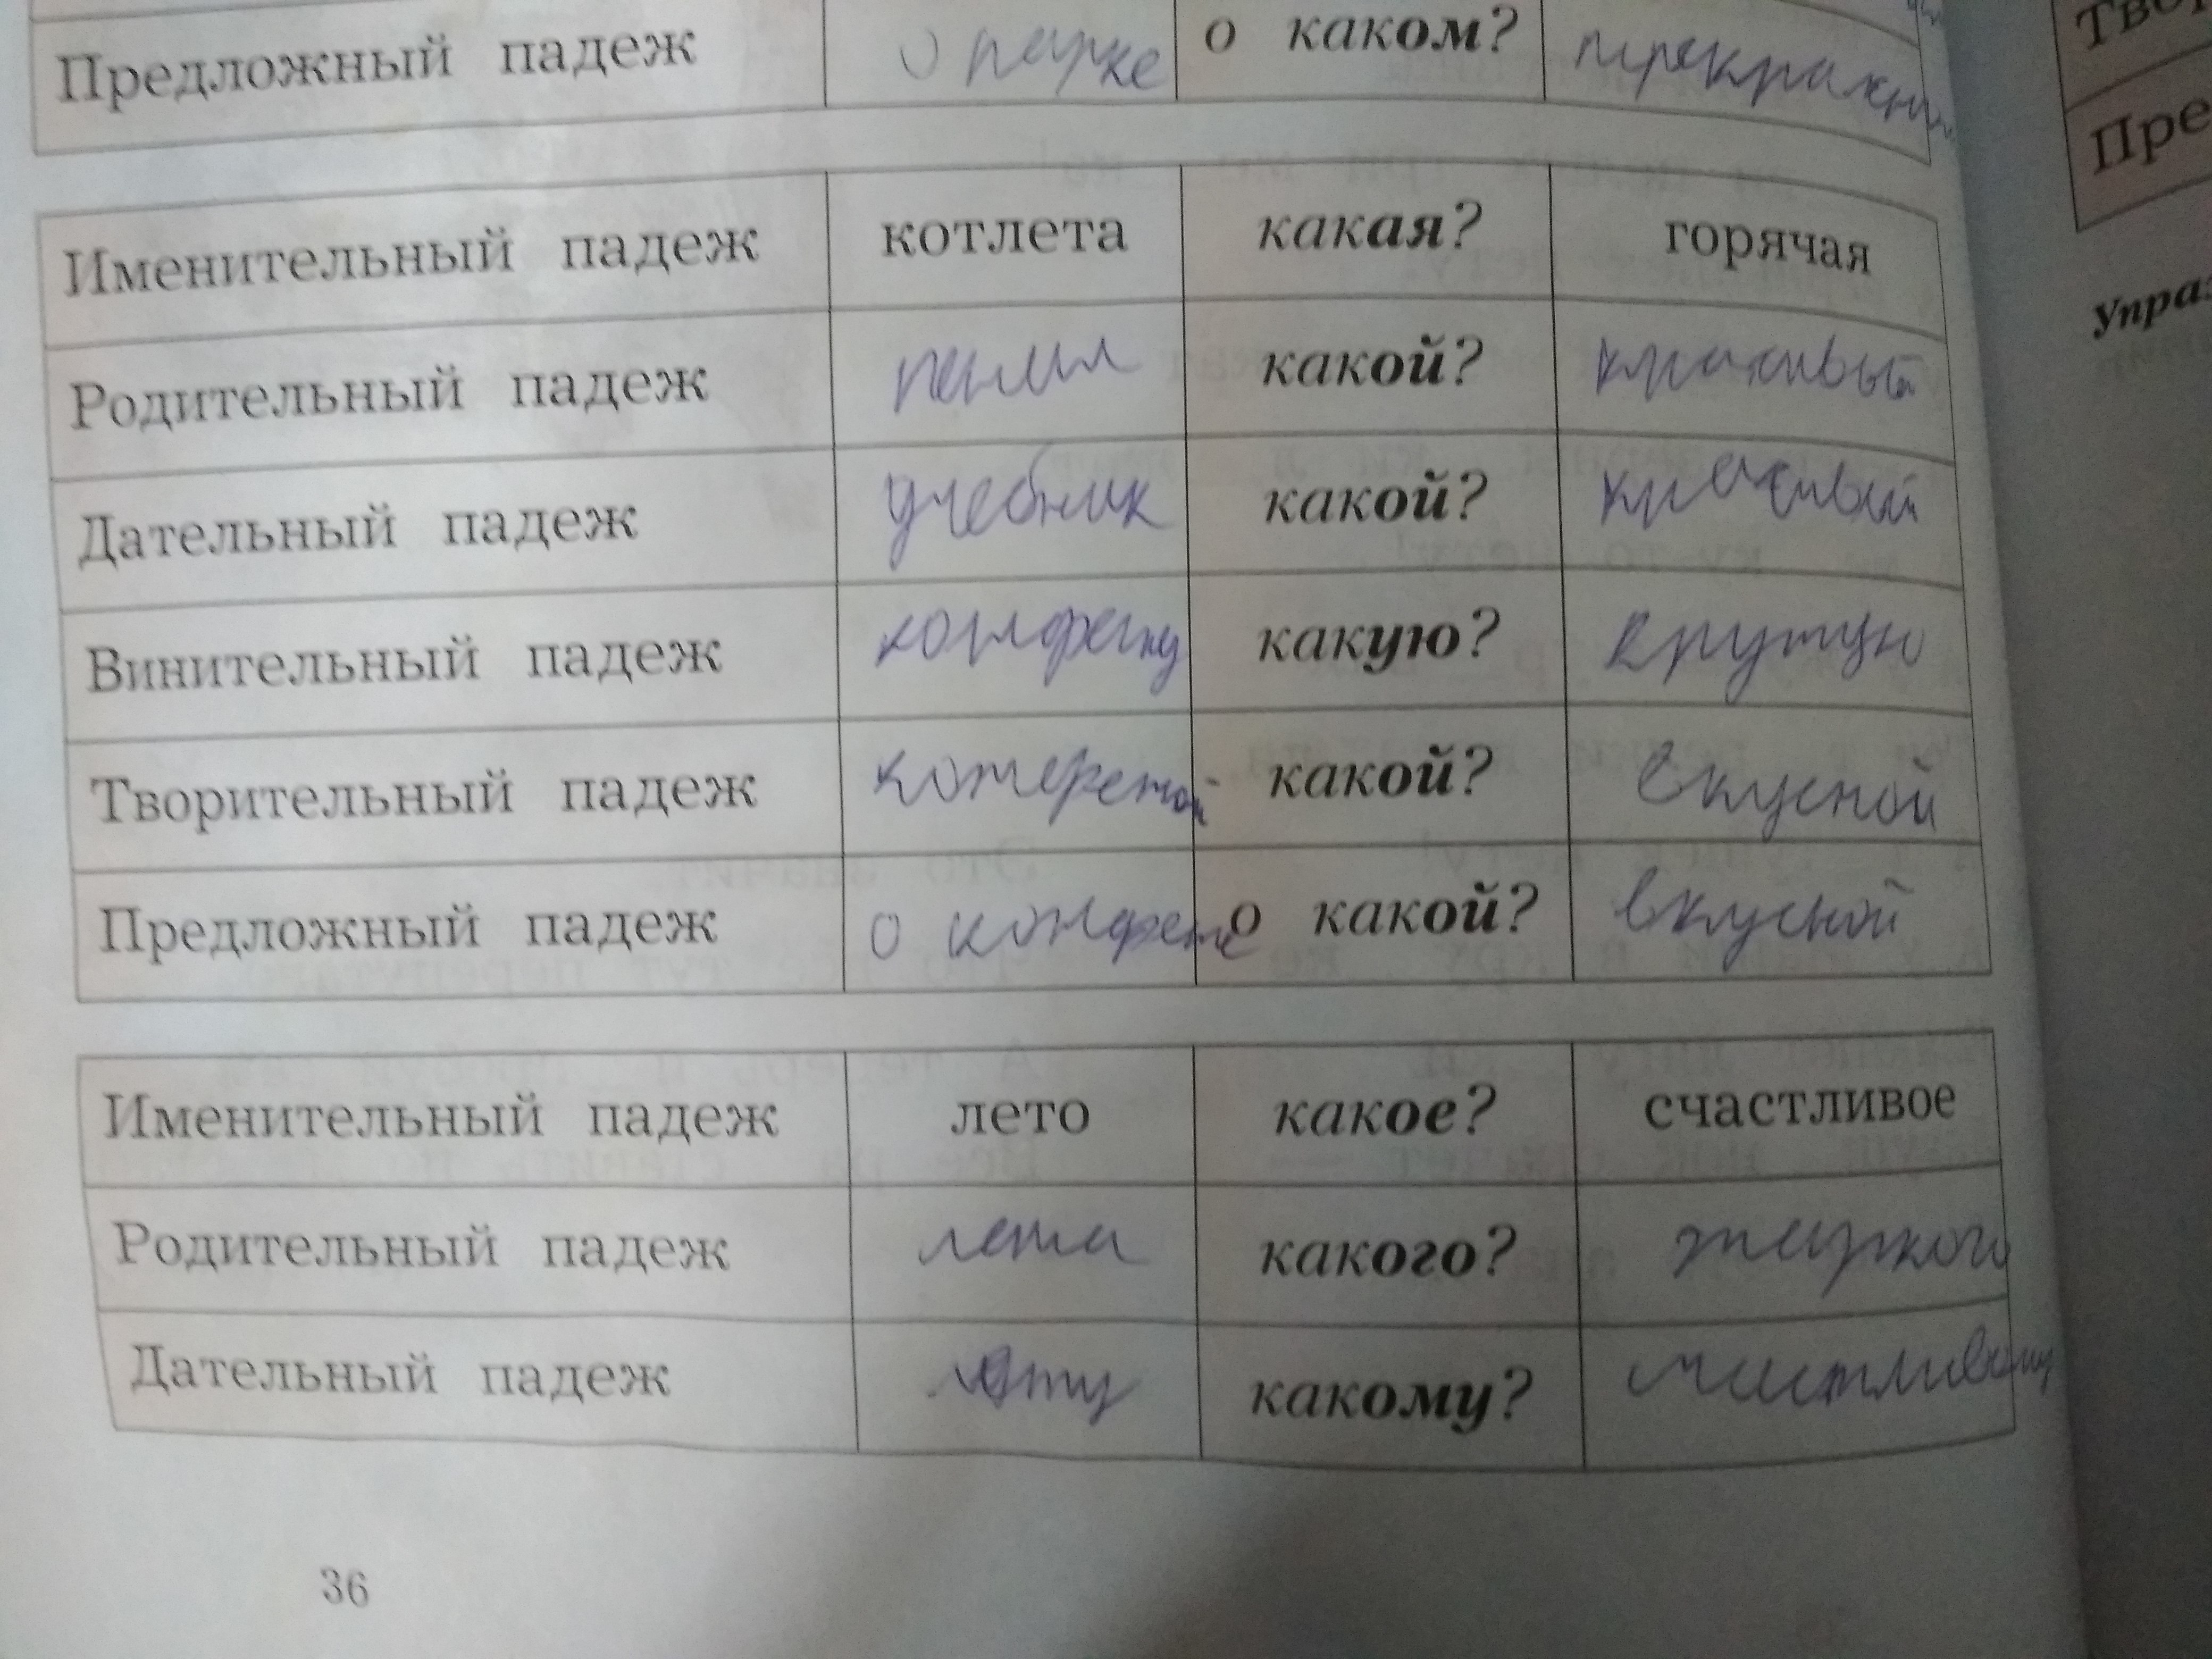 Твор
Предложный падеж о парке о каком?
Пре
Именительный падеж котлета какая? горячая
Упраз
Родительный падеж пенал какой? красивый
Дательный падеж учебник какой? красивый
Винительный падеж конфету какую? крутую
Творительный падеж какой? вкусной
Предложный падеж о конфете о какой? вкусной
Именительный падеж лето какое? счастливое
Родительный падеж лета какого? жаркого
Дательный падеж лету какому? счастливому
36